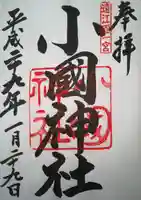 奉拝
遠江國一宮
小國神社
平成二十九年一月二十九日